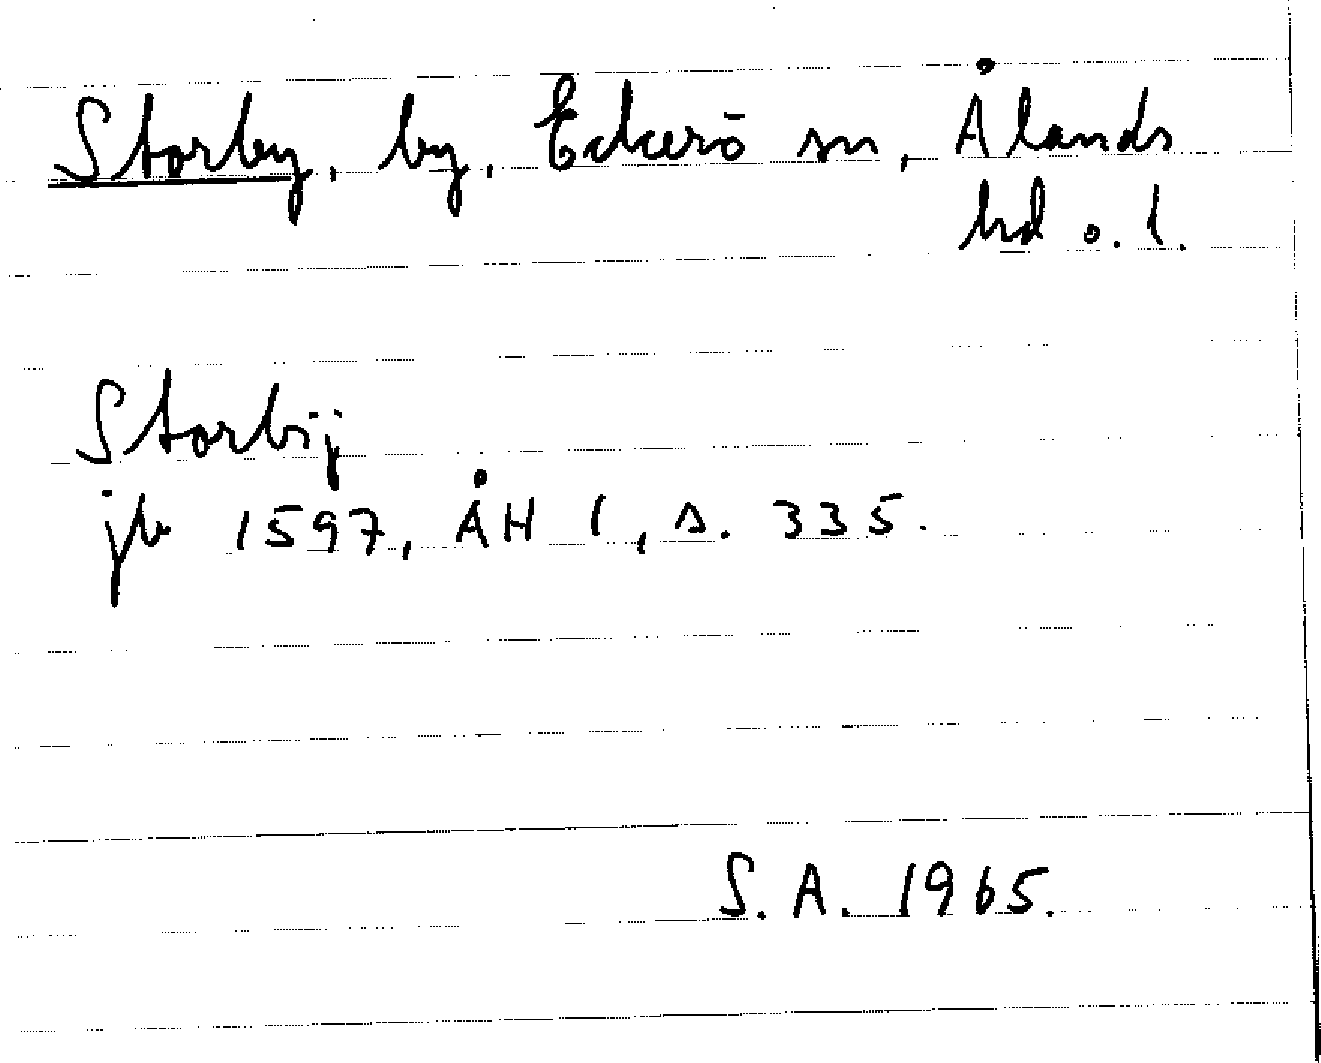 Storby, by, Eckerö sn, Ålands
hd o. l.
Storbij
jb 1597, ÅH I, s. 335.
S. A. 1965.